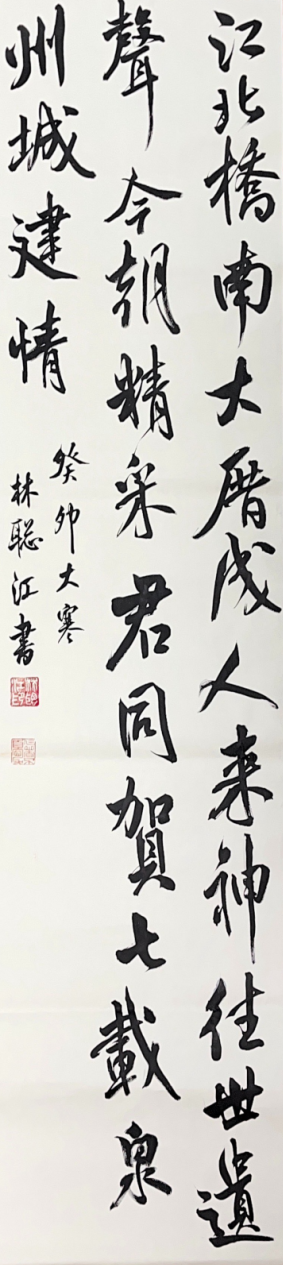 江北橋南大厝成人來神往世遺
聲今朝精采君同賀七載泉
州城建情
癸卯大寒
林聪江書